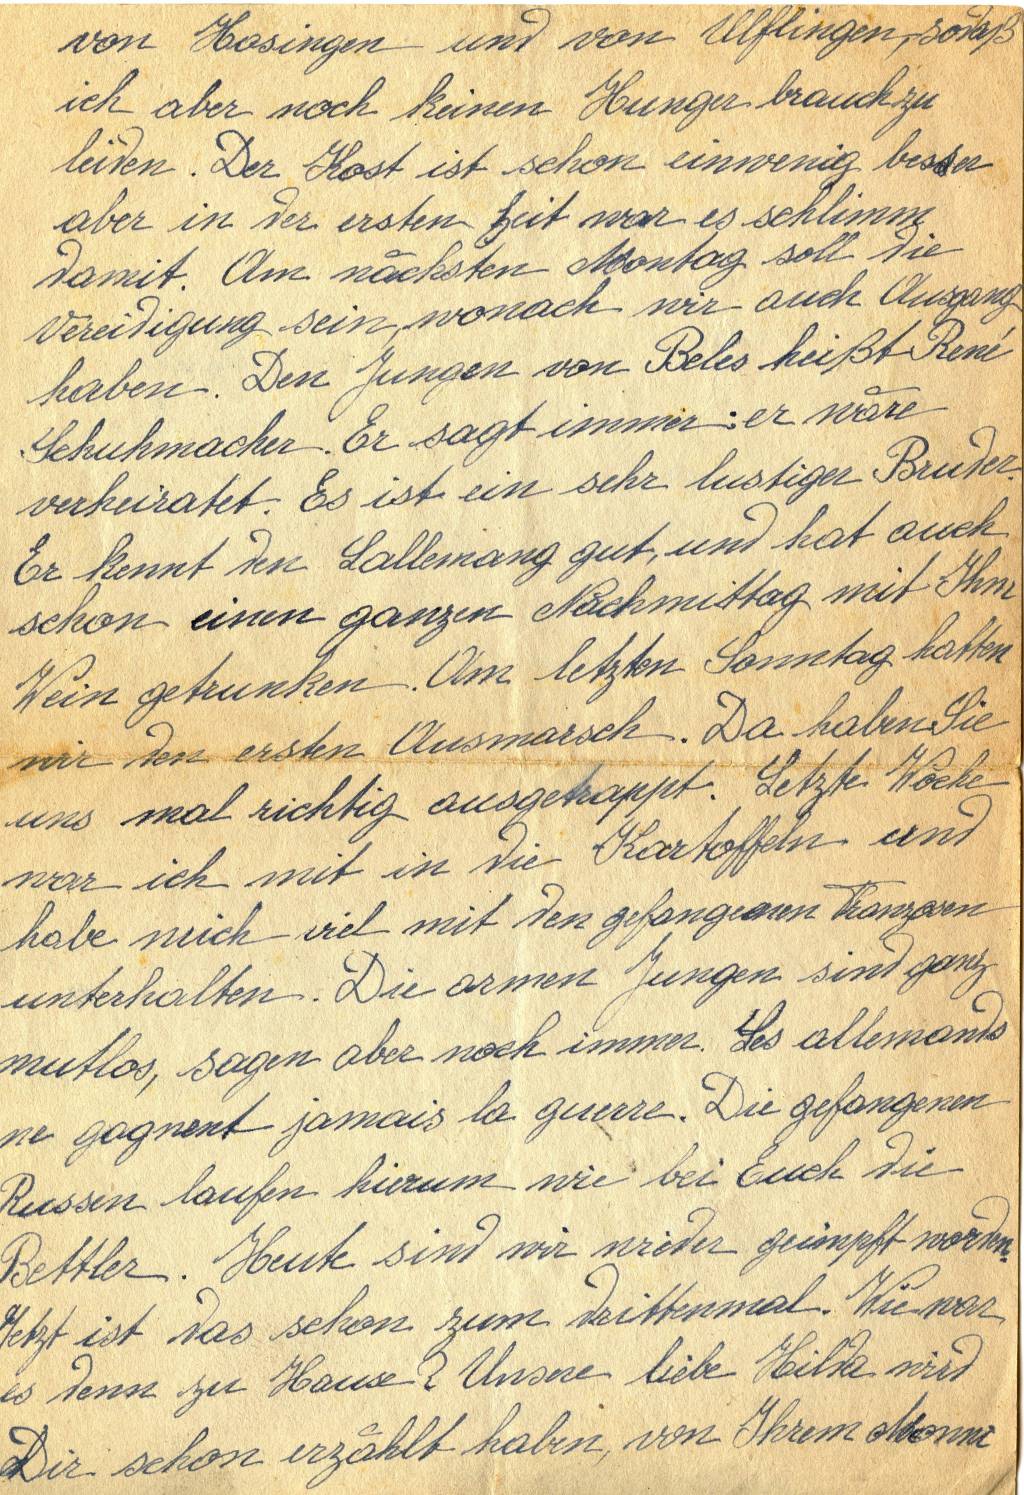 von Hosingen und von Ulflingen, sodaß
ich aber noch keinen Hunger brauch zu
leiden. Der Kost ist schon einwenig besser
aber in der ersten Zeit war es schlimm
damit. Am nächsten Montag soll die
Vereidigung sein, wonach wir auch Ausgang
haben. Den Jungen von Beles heißt René
Schuhmacher. Er sagt immer: er wäre
verheiratet. Es ist ein sehr lustiger Bruder.
Er kennt den Lallemang gut, und hat auch
schon einen ganzen Nachmittag mit Ihm
Wein getrunken. Am letzten Sonntag hatten
wir den ersten Ausmarsch. Da haben Sie
uns mal richtig ausgetrappt. Letzte Woche
war ich mit in die Kartoffeln und
habe mich viel mit den gefangenen Franzosen
unterhalten. Die armen Jungen sind ganz
mutlos, sagen aber noch immer. Les allemands
ne gagnent jamais la guerre. Die gefangenen
Russen laufen hierum wie bei Euch die
Bettler. Heute sind wir wieder geimpft worden.
Jetzt ist das schon zum drittenmal. Wie war
es denn zu Hause? Unsere liebe Hilda wird
Dir schon erzählt haben, von Ihrem Monni